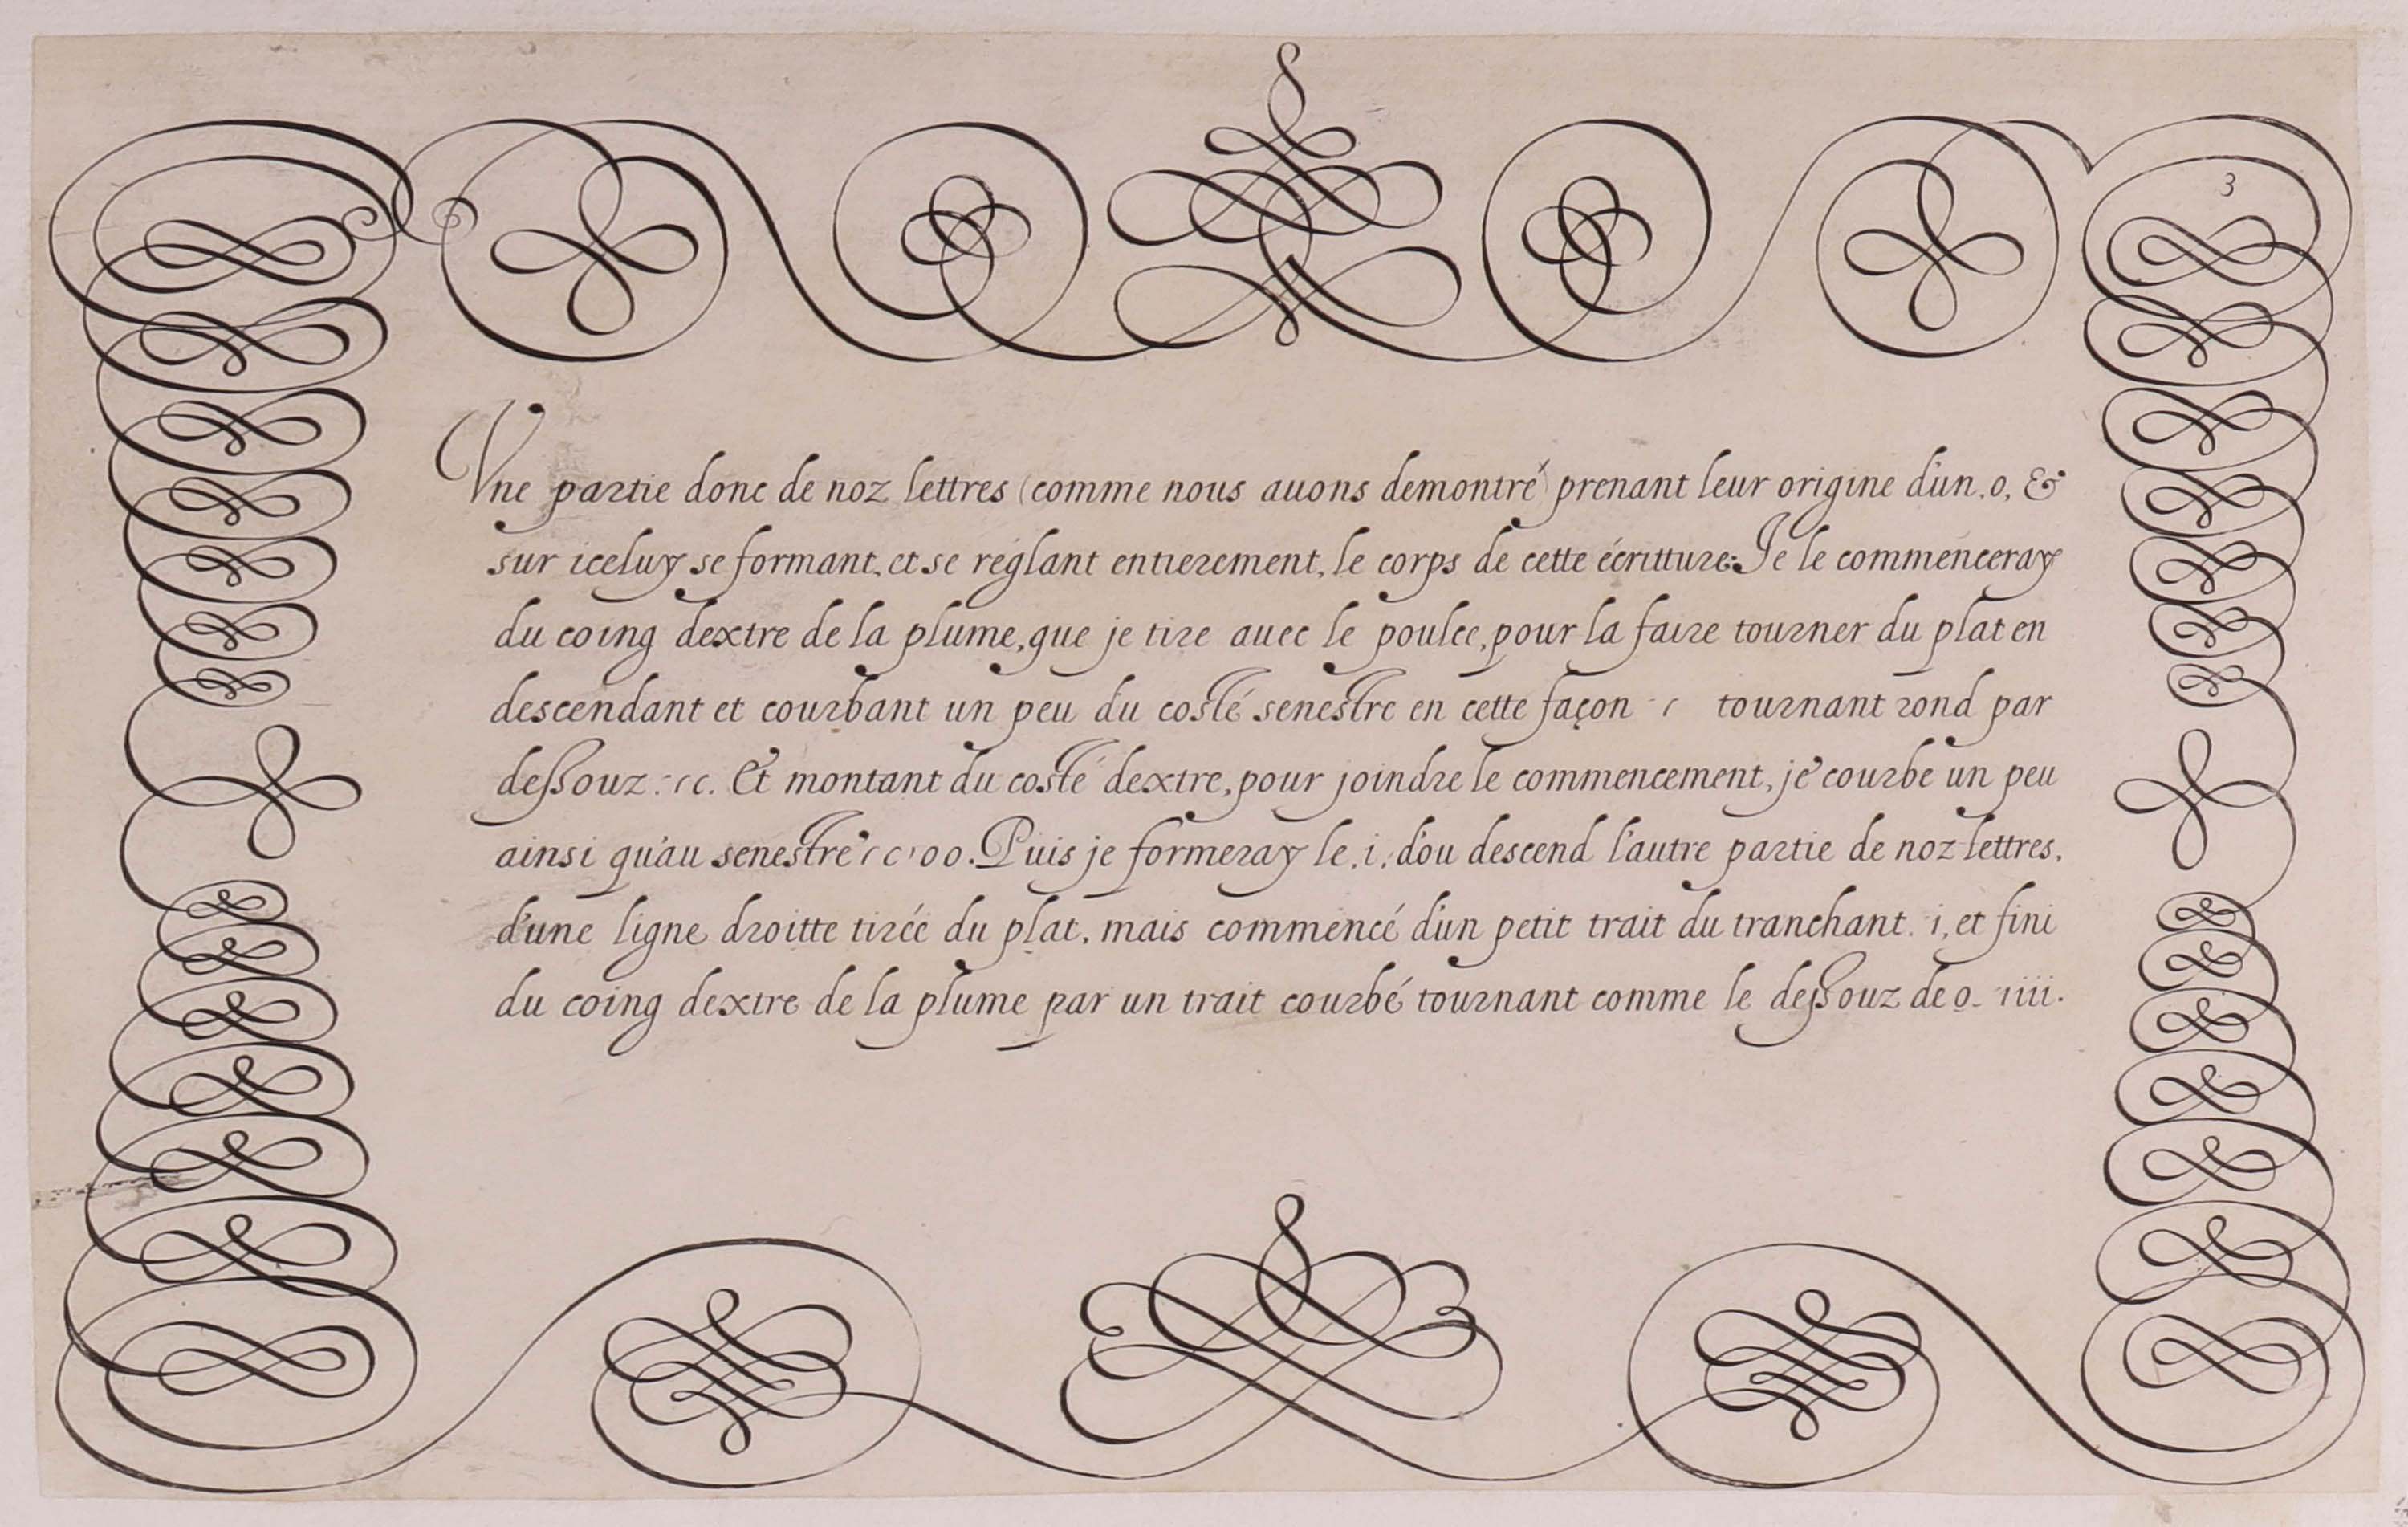 3
Vne partie donc de noz lettres (comme nous auons demontré) prenant leur origine d'un .o, &
sur iceluy se formant, et se réglant entierement, le corps de cette écritture: Je le commenceray
du coing dextre de la plume, que je tire auec le poulce, pour la faire tourner du plat en
descendant et courbant un peu du costé senestre en cette façon - c tournant rond par
deßouz : cc. Et montant du costé dextre, pour joindre le commencement, je courbe un peu
ainsi qu'au senestre c c ' o o. Puis je formeray le .i. d'ou descend l'autre partie de noz lettres,
d'une ligne droitte tirée du plat, mais commencé d'un petit trait du tranchant. i, et fini
du coing dextre de la plume par un trait courbé tournant comme le deßouz de o - ıııi.